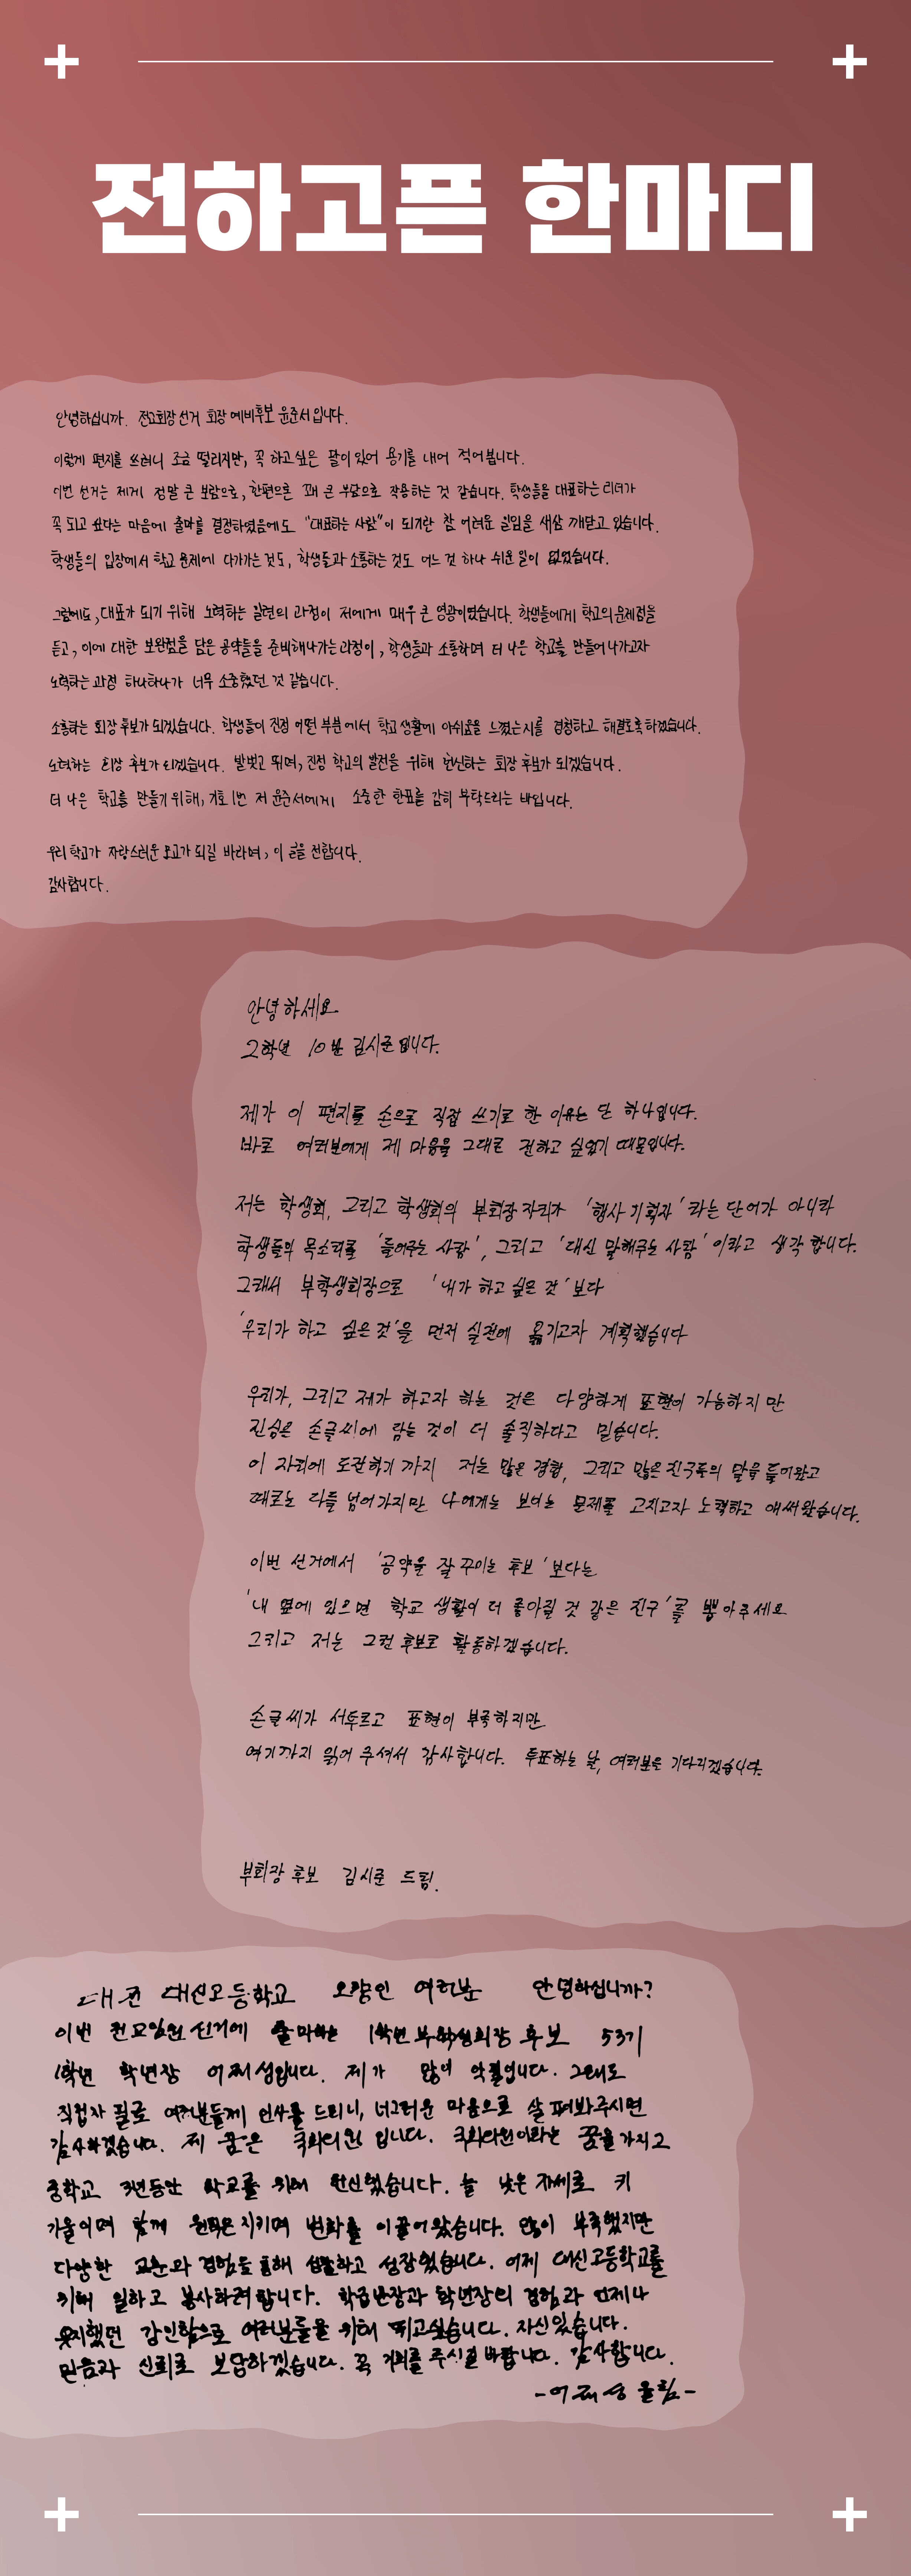 전하고픈 한마디
안녕하십니까. 전교회장 선거 회장 예비후보 윤준서입니다.
이렇게 편지를 쓰려니 조금 떨리지만, 꼭 하고싶은 말이 있어 용기를 내어 적어봅니다.
이번 선거는 제게 정말 큰 보람으로, 한편으론 꽤 큰 부담으로 작용하는 것 같습니다. 학생들을 대표하는 리더가
꼭 되고 싶다는 마음에 출마를 결정하였음에도 "대표하는 사람"이 되기란 참 어려운 일임을 새삼 깨닫고 있습니다.
학생들의 입장에서 학교 문제에 다가가는 것도, 학생들과 소통하는 것도 어느 것 하나 쉬운 일이 없었습니다.
그럼에도, 대표가 되기 위해 노력하는 일련의 과정이 저에게 매우 큰 영광이었습니다. 학생들에게 학교의 문제점을
듣고, 이에 대한 보완점을 담은 공약들을 준비해나가는 과정이, 학생들과 소통하며 더 나은 학교를 만들어 나가고자
노력하는 과정 하나하나가 너무 소중했던 것 같습니다.
소통하는 회장 후보가 되겠습니다. 학생들이 진정 어떤 부분에서 학교 생활에 아쉬움을 느꼈는지를 경청하고 해결토록 하겠습니다.
노력하는 회장 후보가 되겠습니다. 발벗고 뛰며, 진정 학교의 발전을 위해 헌신하는 회장 후보가 되겠습니다.
더 나은 학교를 만들기 위해, 기호 1번 저 윤준서에게 소중한 한표를 감히 부탁드리는 바입니다.
우리 학교가 자랑스러운 모교가 되길 바라며, 이 글을 전합니다.
감사합니다.
안녕하세요
2학년 10반 김시준입니다.
제가 이 편지를 손으로 직접 쓰기로 한 이유는 단 하나입니다.
바로 여러분에게 제 마음을 그대로 전하고 싶었기 때문입니다.
저는 학생회, 그리고 학생회의 부회장 자리가 '행사 기획자'라는 단어가 아니라
학생들의 목소리를 '들어주는 사람', 그리고 '대신 말해주는 사람'이라고 생각합니다.
그래서 부학생회장으로 '내가 하고 싶은 것'보다
'우리가 하고 싶은 것'을 먼저 실천에 옮기고자 계획했습니다
우리가, 그리고 제가 하고자 하는 것은 다양하게 표현이 가능하지만
진심은 손글씨에 담는 것이 더 솔직하다고 믿습니다.
이 자리에 도전하기 까지 저는 많은 경험, 그리고 많은 친구들의 말을 들어왔고
때로는 다들 넘어가지만 나에게는 보이는 문제를 고치고자 노력하고 애써왔습니다.
이번 선거에서 '공약을 잘 꾸미는 후보'보다는
'내 옆에 있으면 학교 생활이 더 좋아질 것 같은 친구'를 뽑아주세요
그리고 저는 그런 후보로 활동하겠습니다.
손글씨가 서투르고 표현이 부족하지만
여기까지 읽어 주셔서 감사합니다. 투표하는 날, 여러분을 기다리겠습니다.
부회장 후보 김시준 드림.
대전 대신고등학교 오량인 여러분 안녕하십니까?
이번 전교임원 선거에 출마하는 1학년 부학생회장 후보 53기
1학년 학년장 이재성입니다. 제가 많이 악필입니다. 그래도
직접 자필로 여러분들께 인사를 드리니, 너그러운 마음으로 살펴봐주시면
감사하겠습니다. 제 꿈은 국회의원 입니다. 국회의원이라는 꿈을 가지고
중학교 3년동안 학교를 위해 헌신했습니다. 늘 낮은 자세로 귀
기울이며 함께 원칙은 지키며 변화를 이끌어 왔습니다. 많이 부족했지만
다양한 교훈과 경험을 통해 성찰하고 성장했습니다. 이제 대신고등학교를
위해 일하고 봉사하려 합니다. 학급반장과 학년장의 경험과 언제나
유지했던 강인함으로 여러분들을 위해 뛰고싶습니다. 자신있습니다.
믿음과 신뢰로 보답하겠습니다. 꼭 기회를 주시길 바랍니다. 감사합니다.
-이재성 올림-